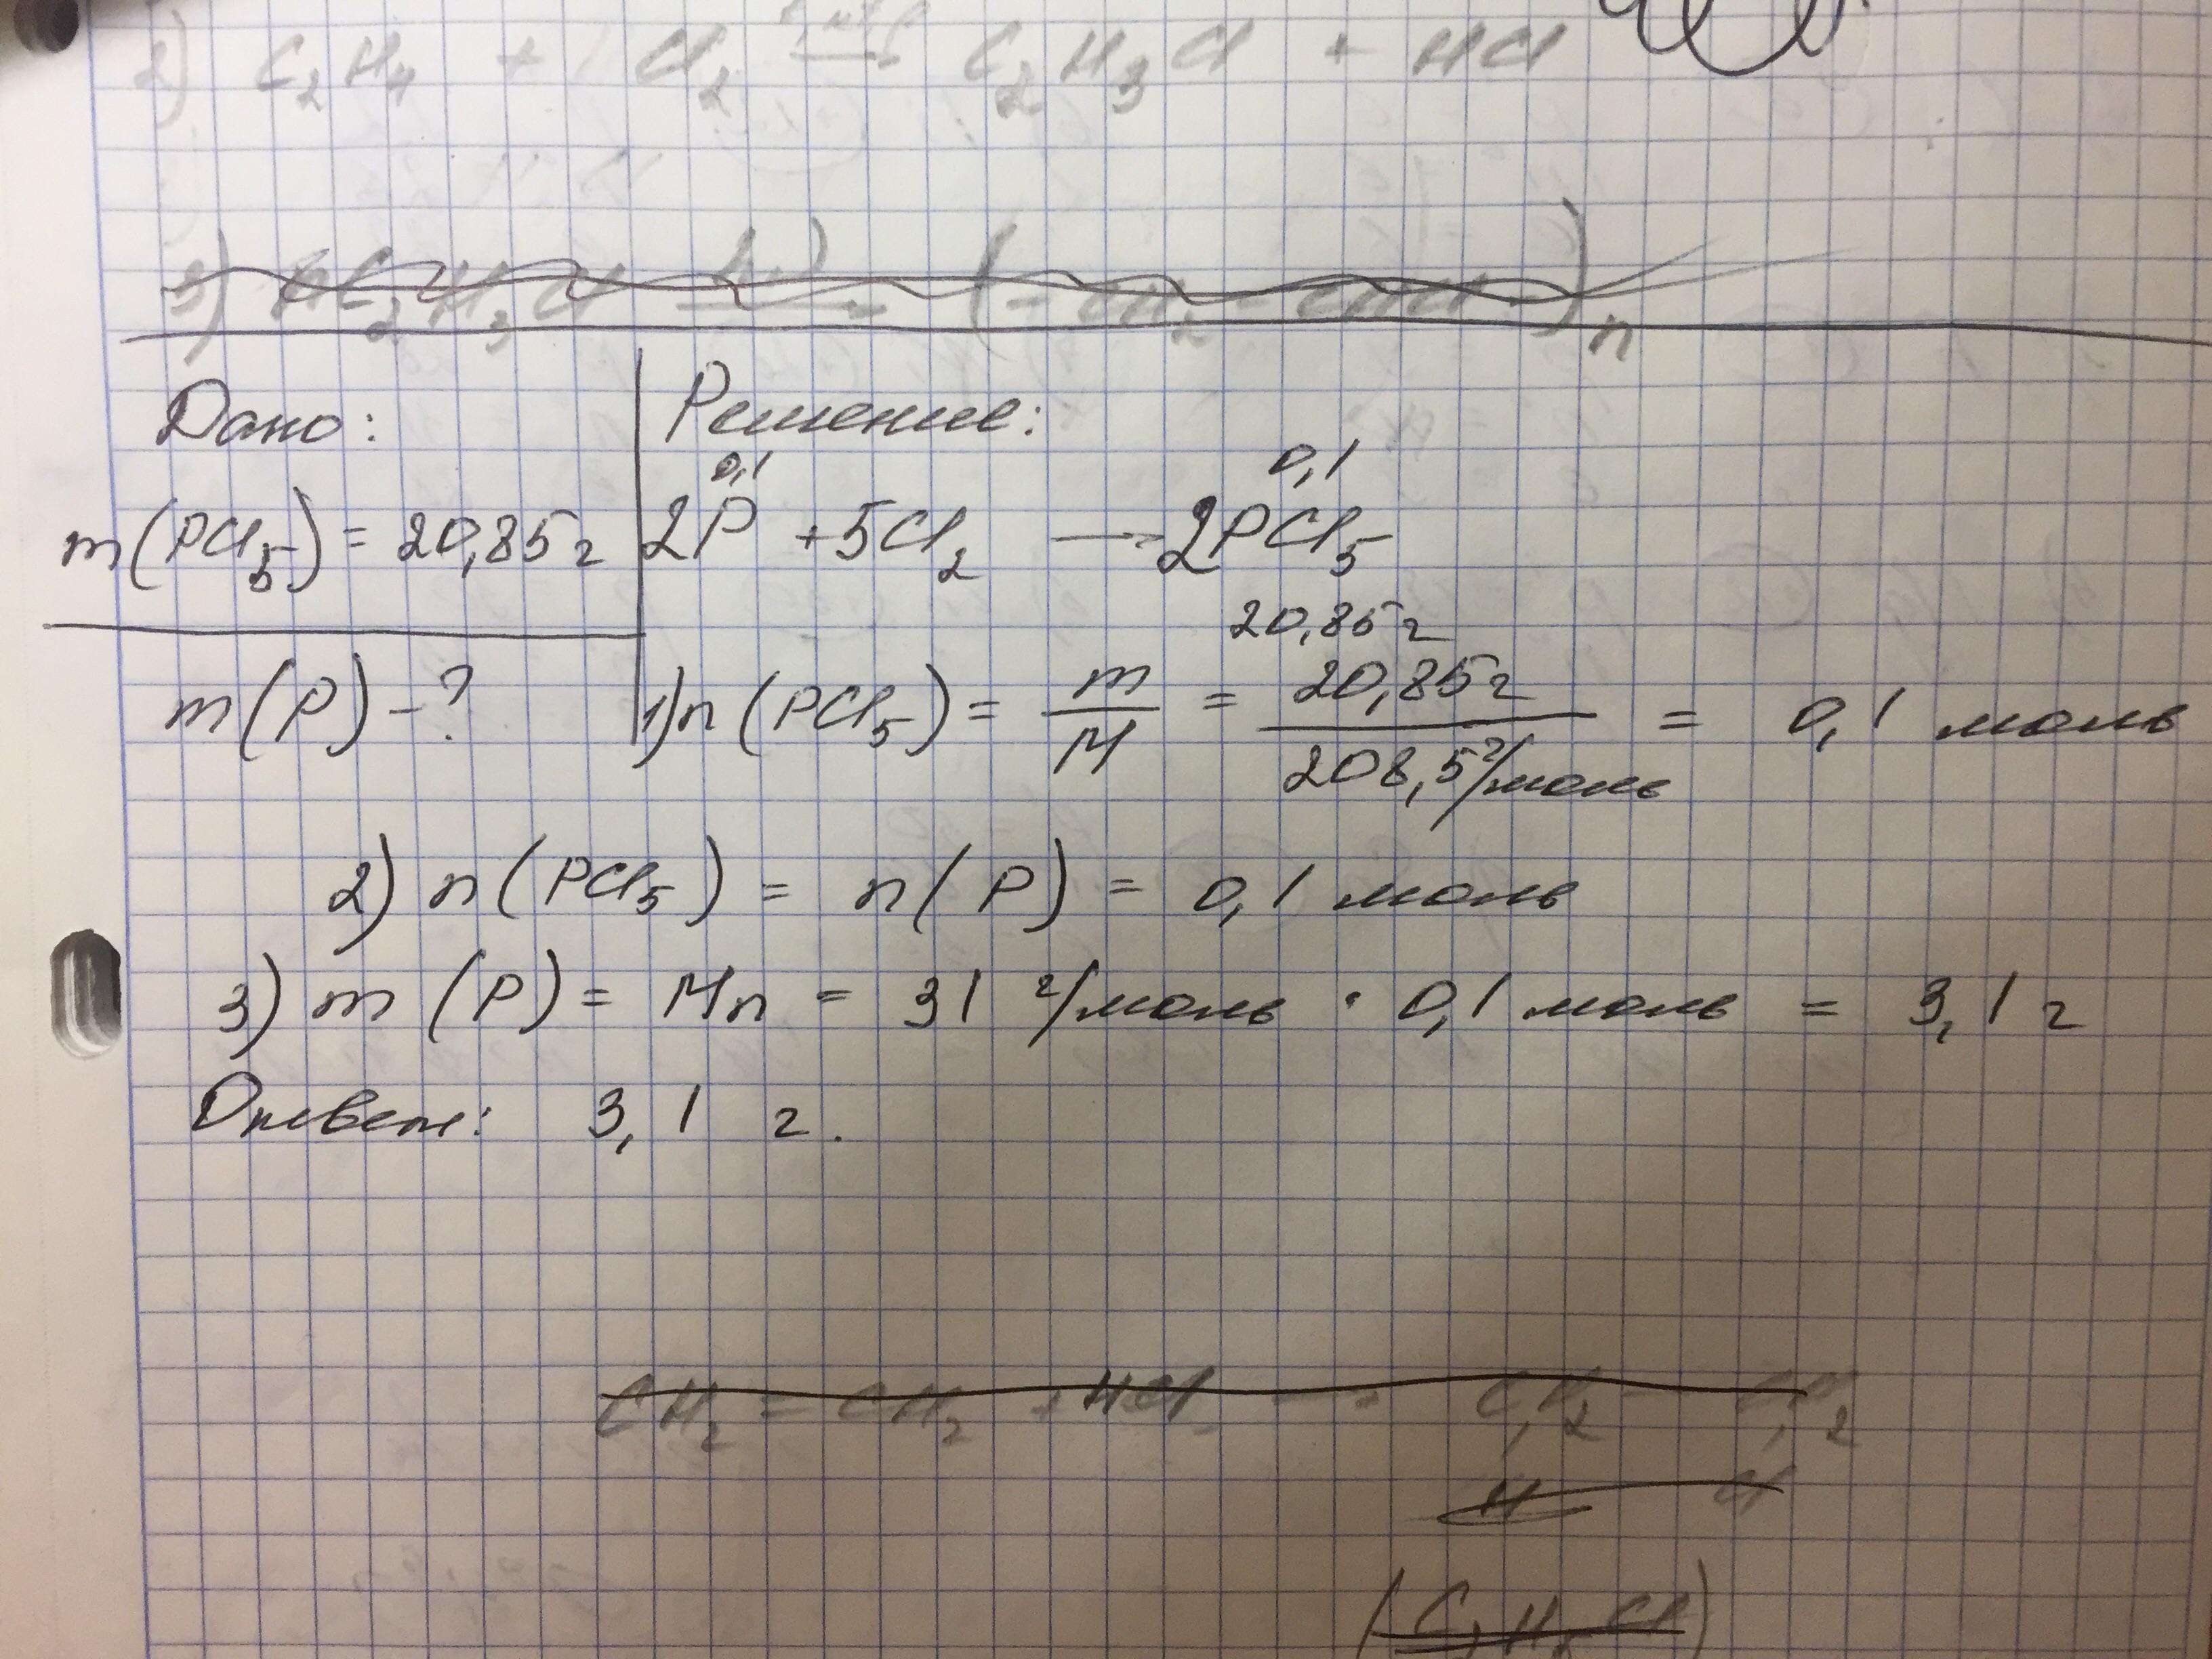 2) C₂H₄ + Cl₂ → C₂H₃Cl + HCl
3) nC₂H₃Cl → (-CH₂-CHCl-)n
Дано:
m(PCl₅) = 20,85 г
m(P) - ?
Решение:
0,1 0,1
2P + 5Cl₂ → 2PCl₅
20,85 г
1) n(PCl₅) = m/M = 20,85 г / 208,5 г/моль = 0,1 моль
2) n(PCl₅) = n(P) = 0,1 моль
3) m(P) = Mn = 31 г/моль · 0,1 моль = 3,1 г
Ответ: 3,1 г.
CH₂ = CH₂ + HCl → CH₂ - CH₂
H Cl
(C₂H₅Cl)